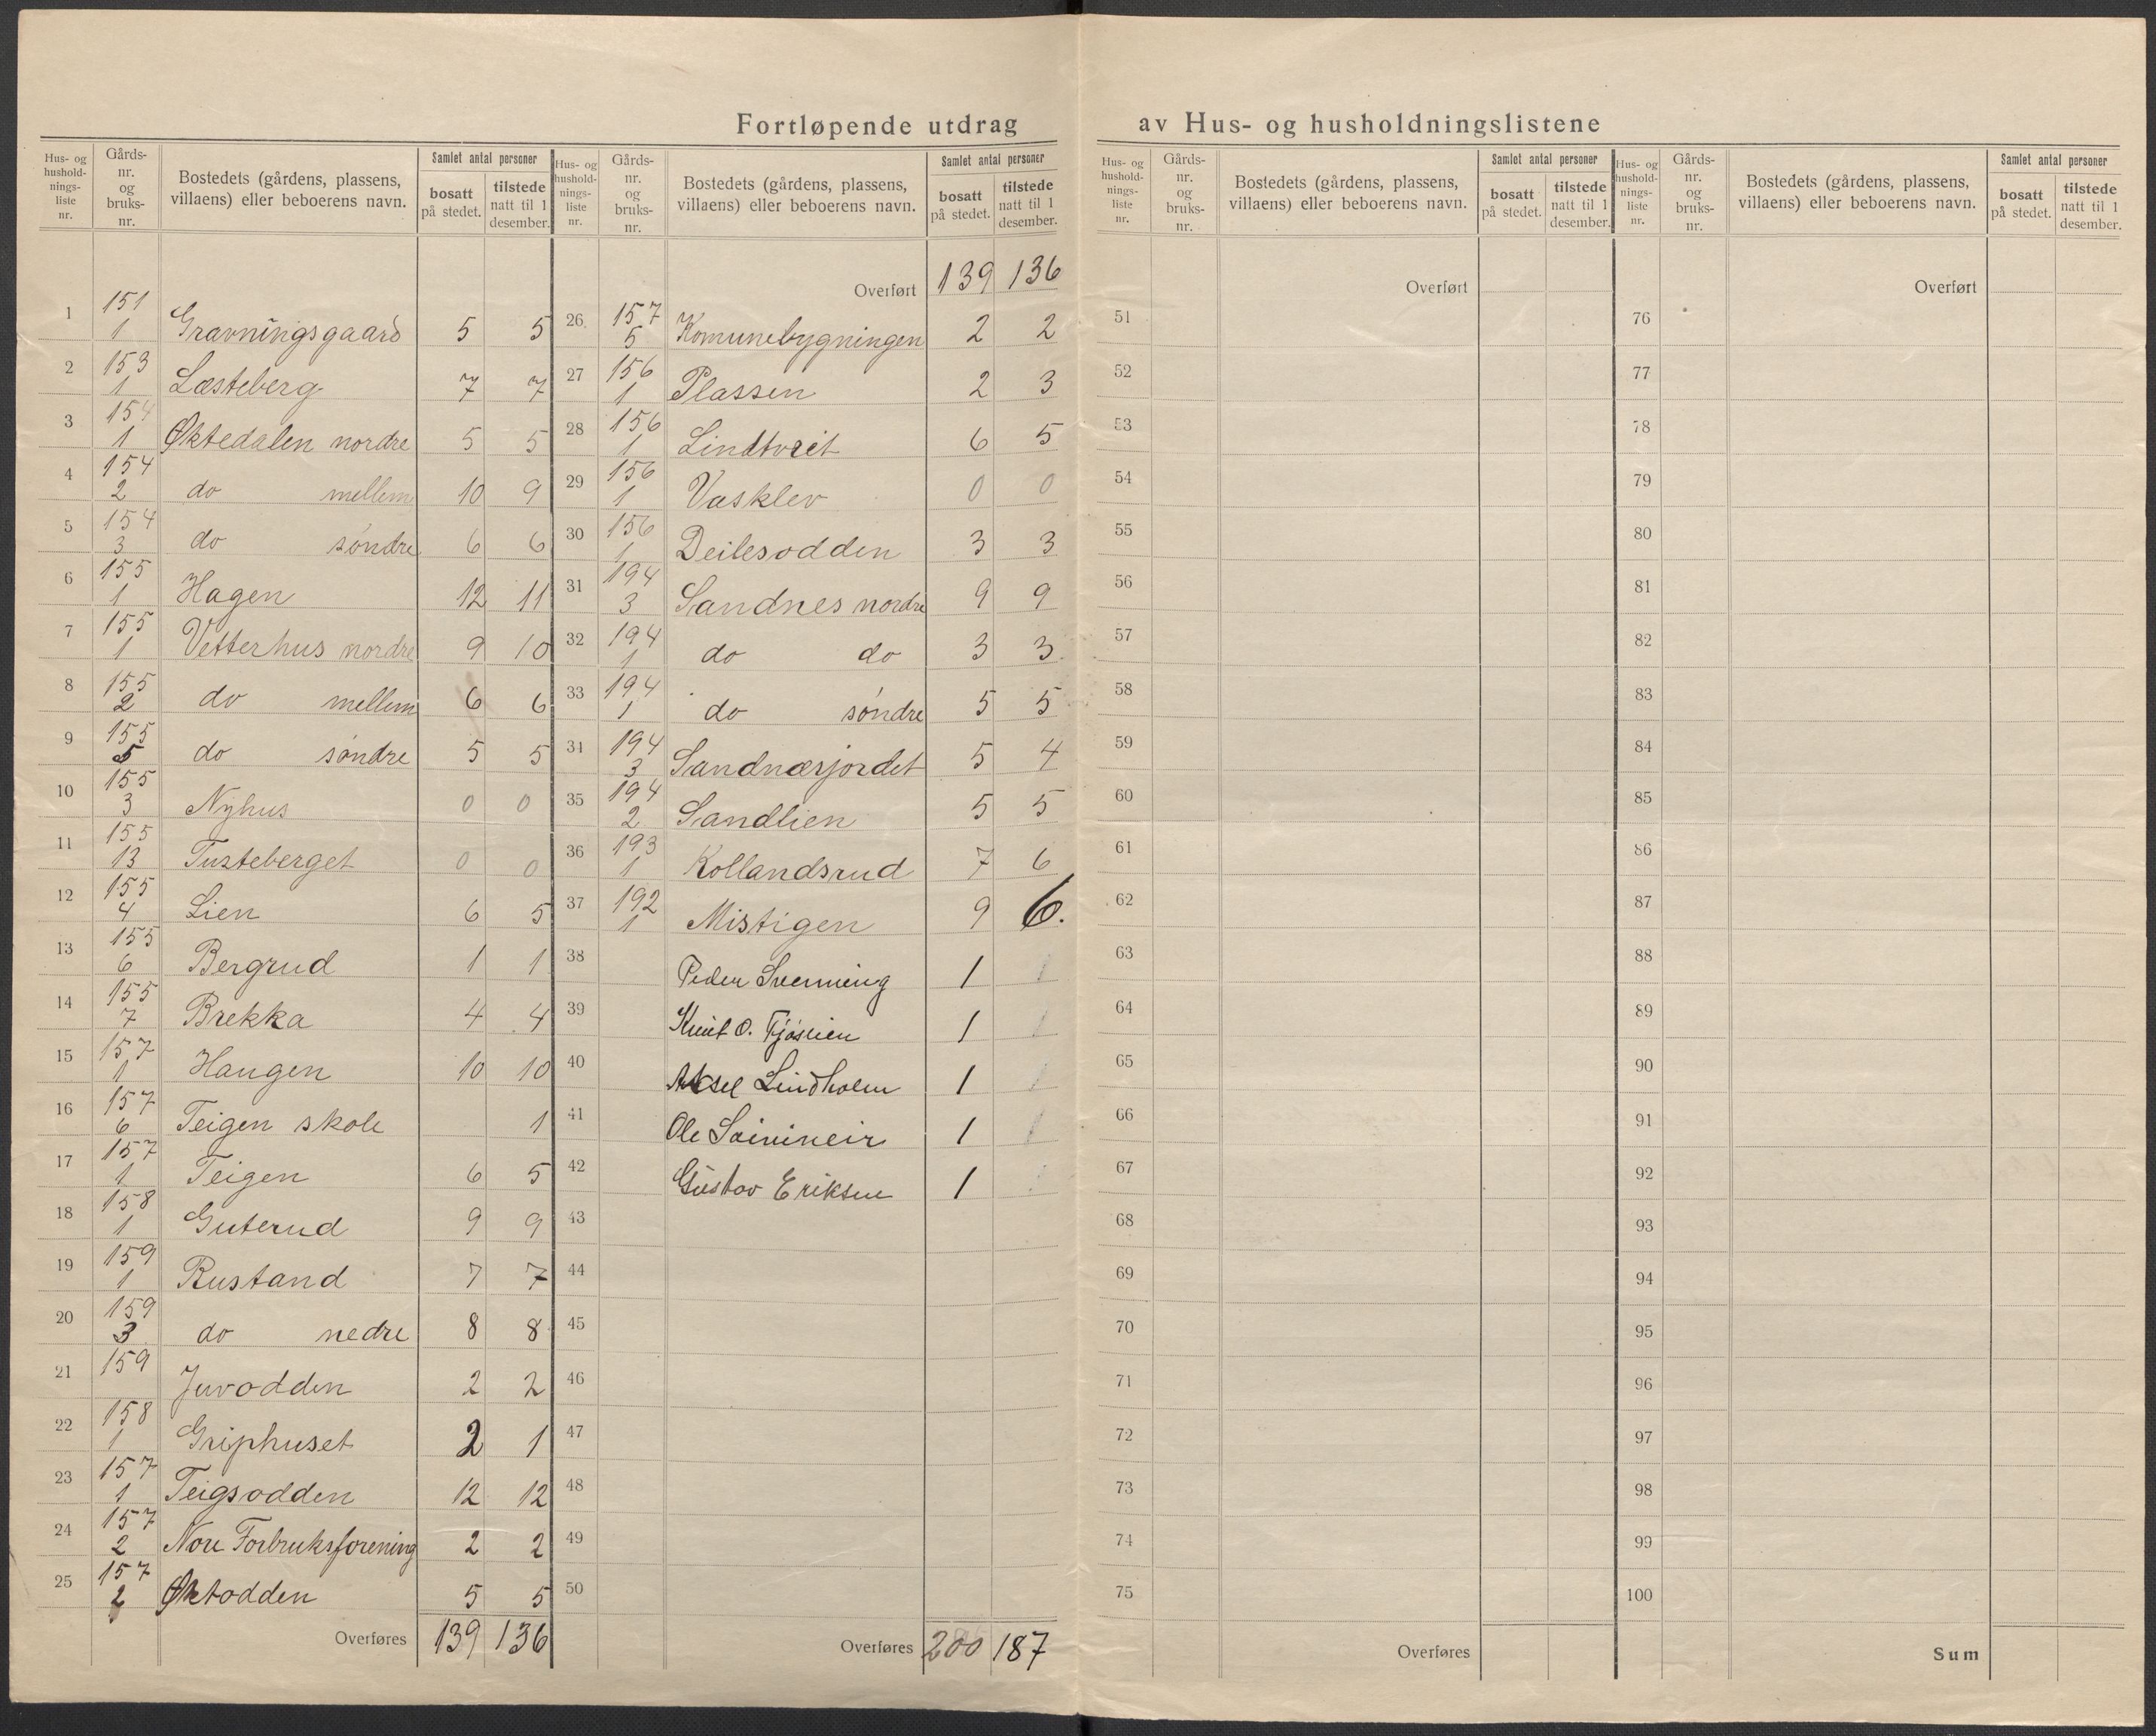 Fortløpende utdrag av Hus- og husholdningslistene
Hus- og husholdnings-liste nr. | Gårds-nr. og bruks-nr. | Bostedets (gårdens, plassens, villaens) eller beboerens navn. | Samlet antal personer | bosatt på stedet. | tilstede natt til 1 desember.
1 151 1 Gravningsgaard 5 5
2 153 1 Læsteberg 7 7
3 154 1 Øktedalen nordre 5 5
4 154 2 do mellem 10 9
5 154 3 do søndre 6 6
6 155 1 Hagen 12 11
7 155 1 Vetterhus nordre 9 10
8 155 2 do mellem 6 6
9 155 5 do søndre 5 5
10 155 3 Nyhus 0 0
11 155 13 Tusteberget 0 0
12 155 4 Lien 6 5
13 155 6 Bergrud 1 1
14 155 7 Brekka 4 4
15 157 1 Haugen 10 10
16 157 6 Teigen skole 1
17 157 1 Teigen 6 5
18 158 1 Guterud 9 9
19 159 1 Rustand 7 7
20 159 3 do nedre 8 8
21 159 Juvodden 2 2
22 158 1 Griphuset 2 1
23 157 1 Teigsodden 12 12
24 157 2 Nore Forbruksforening 2 2
25 157 2 Øktodden 5 5
Overføres 139 136
Hus- og husholdnings-liste nr. | Gårds-nr. og bruks-nr. | Bostedets (gårdens, plassens, villaens) eller beboerens navn. | Samlet antal personer | bosatt på stedet. | tilstede natt til 1 desember.
Overført 139 136
26 157 5 Komunebygningen 2 2
27 156 1 Plassen 2 3
28 156 1 Lindtveit 6 5
29 156 1 Vasklev 0 0
30 156 1 Deilesodden 3 3
31 194 3 Sandnes nordre 9 9
32 194 1 do do 3 3
33 194 1 do søndre 5 5
34 194 3 Sandnæsjordet 5 4
35 194 2 Sandlien 5 5
36 193 1 Kollandsrud 7 6
37 192 1 Mistigen 9 6.
38 Peder 1 1
39 Knut O. 1 1
40 Aksel Lindholm 1 1
41 Ole 1 1
42 Gustav Eriksen 1
43
44
45
46
47
48
49
50
Overføres 200 187
Hus- og husholdnings-liste nr. | Gårds-nr. og bruks-nr. | Bostedets (gårdens, plassens, villaens) eller beboerens navn. | Samlet antal personer | bosatt på stedet. | tilstede natt til 1 desember.
Overført
51
52
53
54
55
56
57
58
59
60
61
62
63
64
65
66
67
68
69
70
71
72
73
74
75
Overføres
Hus- og husholdnings-liste nr. | Gårds-nr. og bruks-nr. | Bostedets (gårdens, plassens, villaens) eller beboerens navn. | Samlet antal personer | bosatt på stedet. | tilstede natt til 1 desember.
Overført
76
77
78
79
80
81
82
83
84
85
86
87
88
89
90
91
92
93
94
95
96
97
98
99
100
Sum